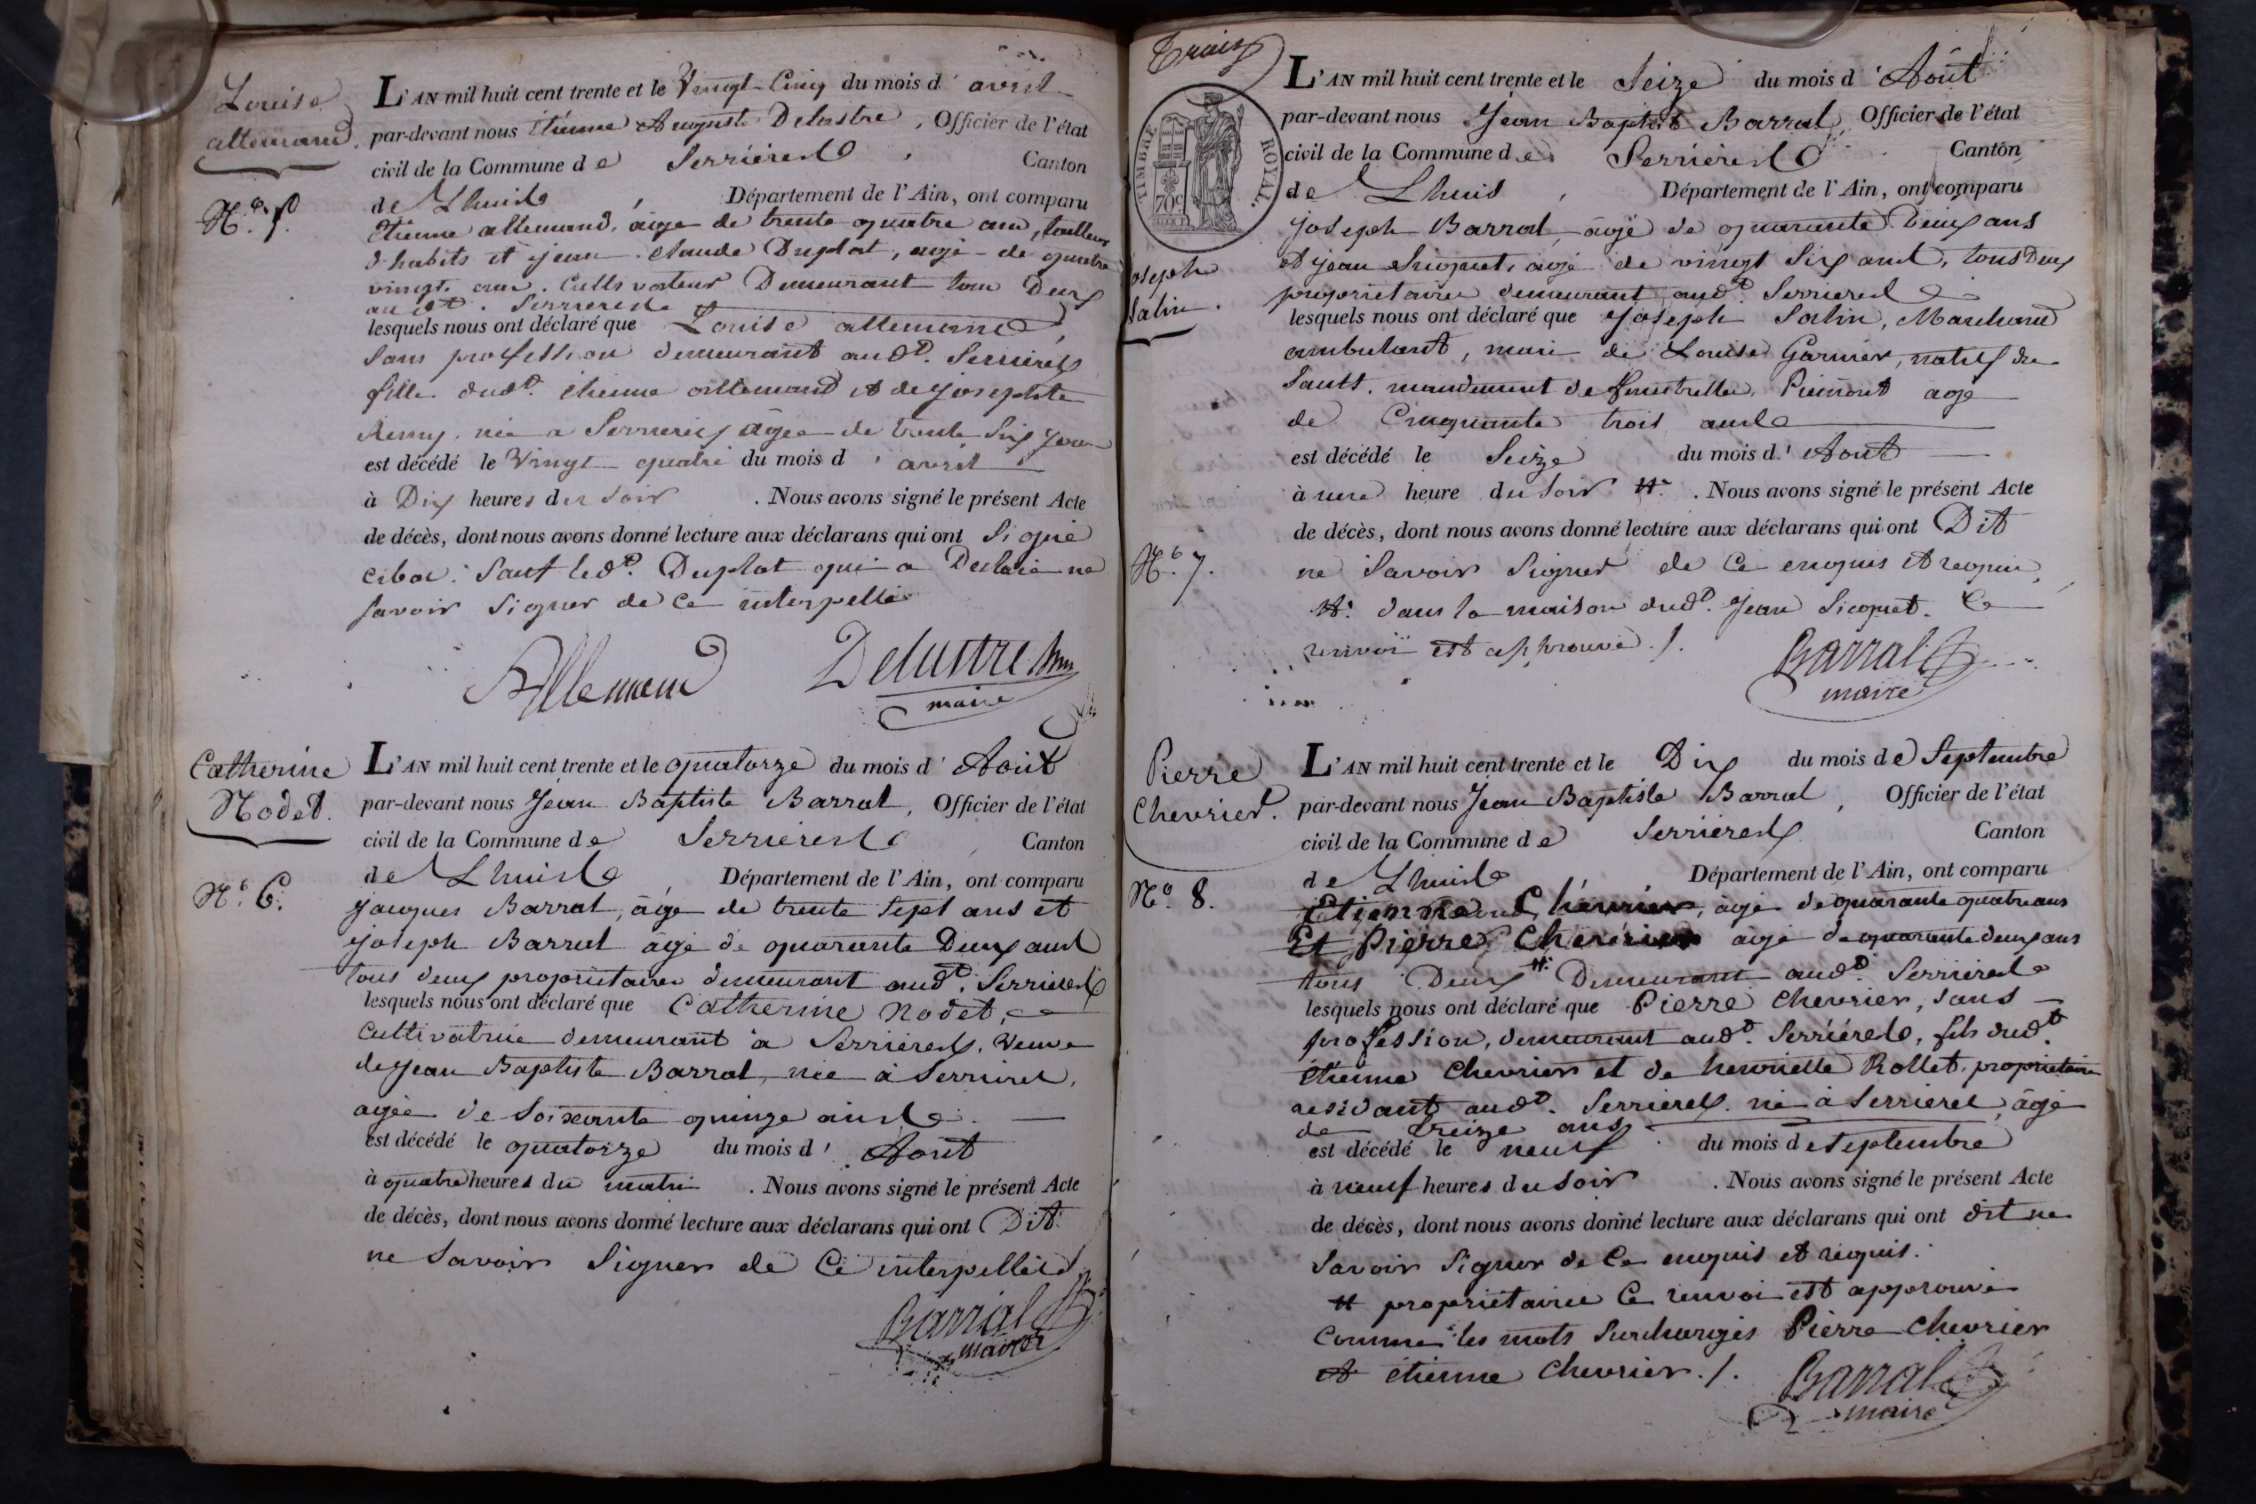 Louise
allemand.
N.º 5.
L'AN mil huit cent trente et le Vingt-Cinq du mois d' avril
par-devant nous Etienne Auguste Delastre, Officier de l'état
civil de la Commune de Serrières, Canton
de Lhuis, Département de l'Ain, ont comparu
Etienne allemand, âgé de trente quatre ans, tailleur
d'habits et jean Claude Duplat, agé de quatre
vingt ans. Cultivateur Demeurant tous Deux
aud.t Serrieres
lesquels nous ont déclaré que Louise allemand,
sans profession demeurant aud.t Serrières
fille dud.t étienne allemand et de josephte
Remy, née a Serrieres âgée de trente six jours
est décédé le Vingt quatre du mois d' avril
à Dix heures du soir. Nous avons signé le présent Acte
de décès, dont nous avons donné lecture aux déclarans qui ont signé
sauf led.t Duplat qui a Declaré ne
savoir signer de ce interpellé
Allemand Delastre
maire
Catherine
Nodet.
N.º 6.
L'AN mil huit cent trente et le quatorze du mois d' Août
par-devant nous Jean Baptiste Barral, Officier de l'état
civil de la Commune de Serrières, Canton
de Lhuis, Département de l'Ain, ont comparu
jacques Barral, âgé de trente sept ans et
joseph Barral âgé de quarante Deux ans
tous deux propriétaires demeurant aud.t Serrieres
lesquels nous ont déclaré que Catherine Nodet,
cultivatrice demeurant à Serrières, Veuve
de Jean Baptiste Barral, née à Serrieres,
agée de soixante quinze ans
est décédé le quatorze du mois d' Août
à quatre heures du matin. Nous avons signé le présent Acte
de décès, dont nous avons donné lecture aux déclarans qui ont Dit
ne savoir signer de ce interpellés
Barral
maire
TIMBRE ROYAL.
70c
joseph
Salin.
N.º 7.
L'AN mil huit cent trente et le Seize du mois d' Août
par-devant nous Jean Baptiste Barral, Officier de l'état
civil de la Commune de Serrières Canton
de Lhuis, Département de l'Ain, ont comparu
joseph Barral, âgé de quarante Deux ans
et jean Sicquet, agé de vingt six ans, tous Deux
propriétaires demeurant aud.t Serrieres
lesquels nous ont déclaré que joseph Salin, Marchand
ambulant, mari de Louise Garnier, natif de
mandement de Piémont agé
de Cinquante trois ans
est décédé le Seize du mois d' Août
à une heure du soir #. Nous avons signé le présent Acte
de décès, dont nous avons donné lecture aux déclarans qui ont Dit
ne savoir signer de ce enquis et requis,
# dans la maison dud.t Jean Sicquet. Ce
renvoi est approuvé ./.
Barral
maire
Pierre
Chevrier.
N.º 8.
L'AN mil huit cent trente et le Dix du mois de Septembre
par-devant nous Jean Baptiste Barral, Officier de l'état
civil de la Commune de Serrières Canton
de Lhuis Département de l'Ain, ont comparu
Etienne Chevrier, âgé de quarante quatre ans
Et Pierre Chevrier agé de quarante deux ans
tous Deux # Demeurant aud.t Serrières
lesquels nous ont déclaré que Pierre Chevrier, sans
profession, demeurant aud.t Serrières, fils dud.t
étienne Chevrier et de henriette Rollet, propriétaires
résidant aud.t Serrieres. né à Serrieres, âgé
de treize ans
est décédé le neuf du mois de septembre
à neuf heures du soir. Nous avons signé le présent Acte
de décès, dont nous avons donné lecture aux déclarans qui ont dit ne
savoir signer de ce enquis et requis.
# propriétaires Ce renvoi est approuvé
comme les mots surchargés Pierre Chevrier
et étienne Chevrier ./.
Barral
maire